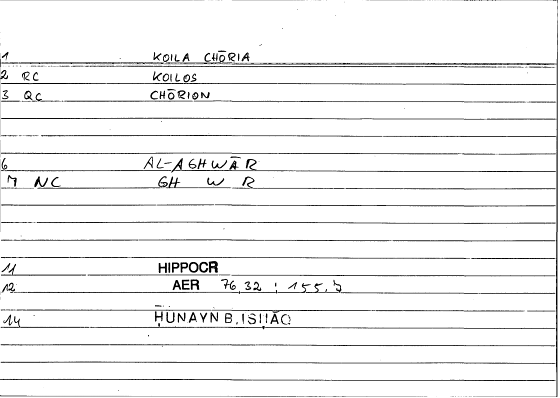 1 KOILA CHŌRIA
2 RC KOILOS
3 QC CHŌRION
6 AL-AGHWĀR
7 NC GH W R
11 HIPPOCR
12 AER 76,32 ; 155,5
14 ḤUNAYN B. ISḤĀQ